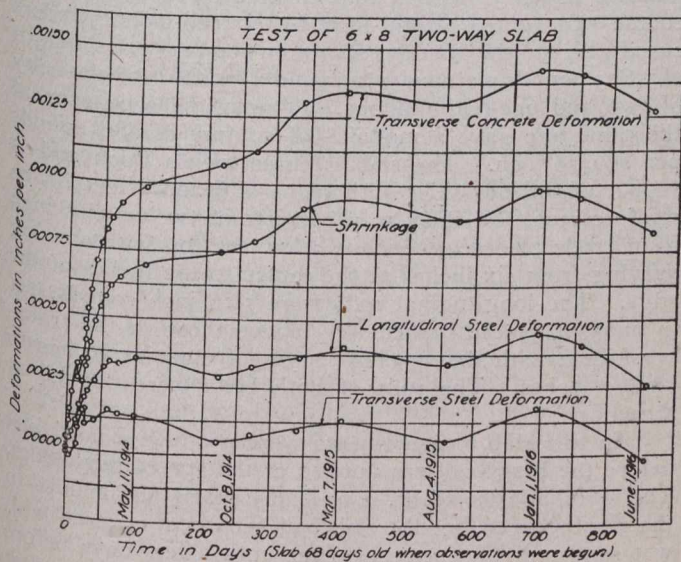 TEST OF 6 x 8 TWO-WAY SLAB
Deformations in inches per inch
.00150
.00125
.00100
.00075
.00050
.00025
.00000
Transverse Concrete Deformation
Shrinkage
Longitudinal Steel Deformation
Transverse Steel Deformation
May 11, 1914
Oct 8, 1914
Mar. 7, 1915
Aug 4, 1915
Jan. 1, 1916
June 1, 1916
0 100 200 300 400 500 600 700 800
Time in Days (Slab 68 days old when observations were begun)